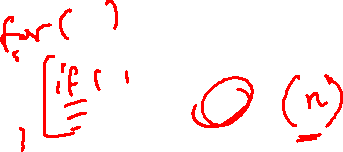 for( )
{
if( )
}
O(n)